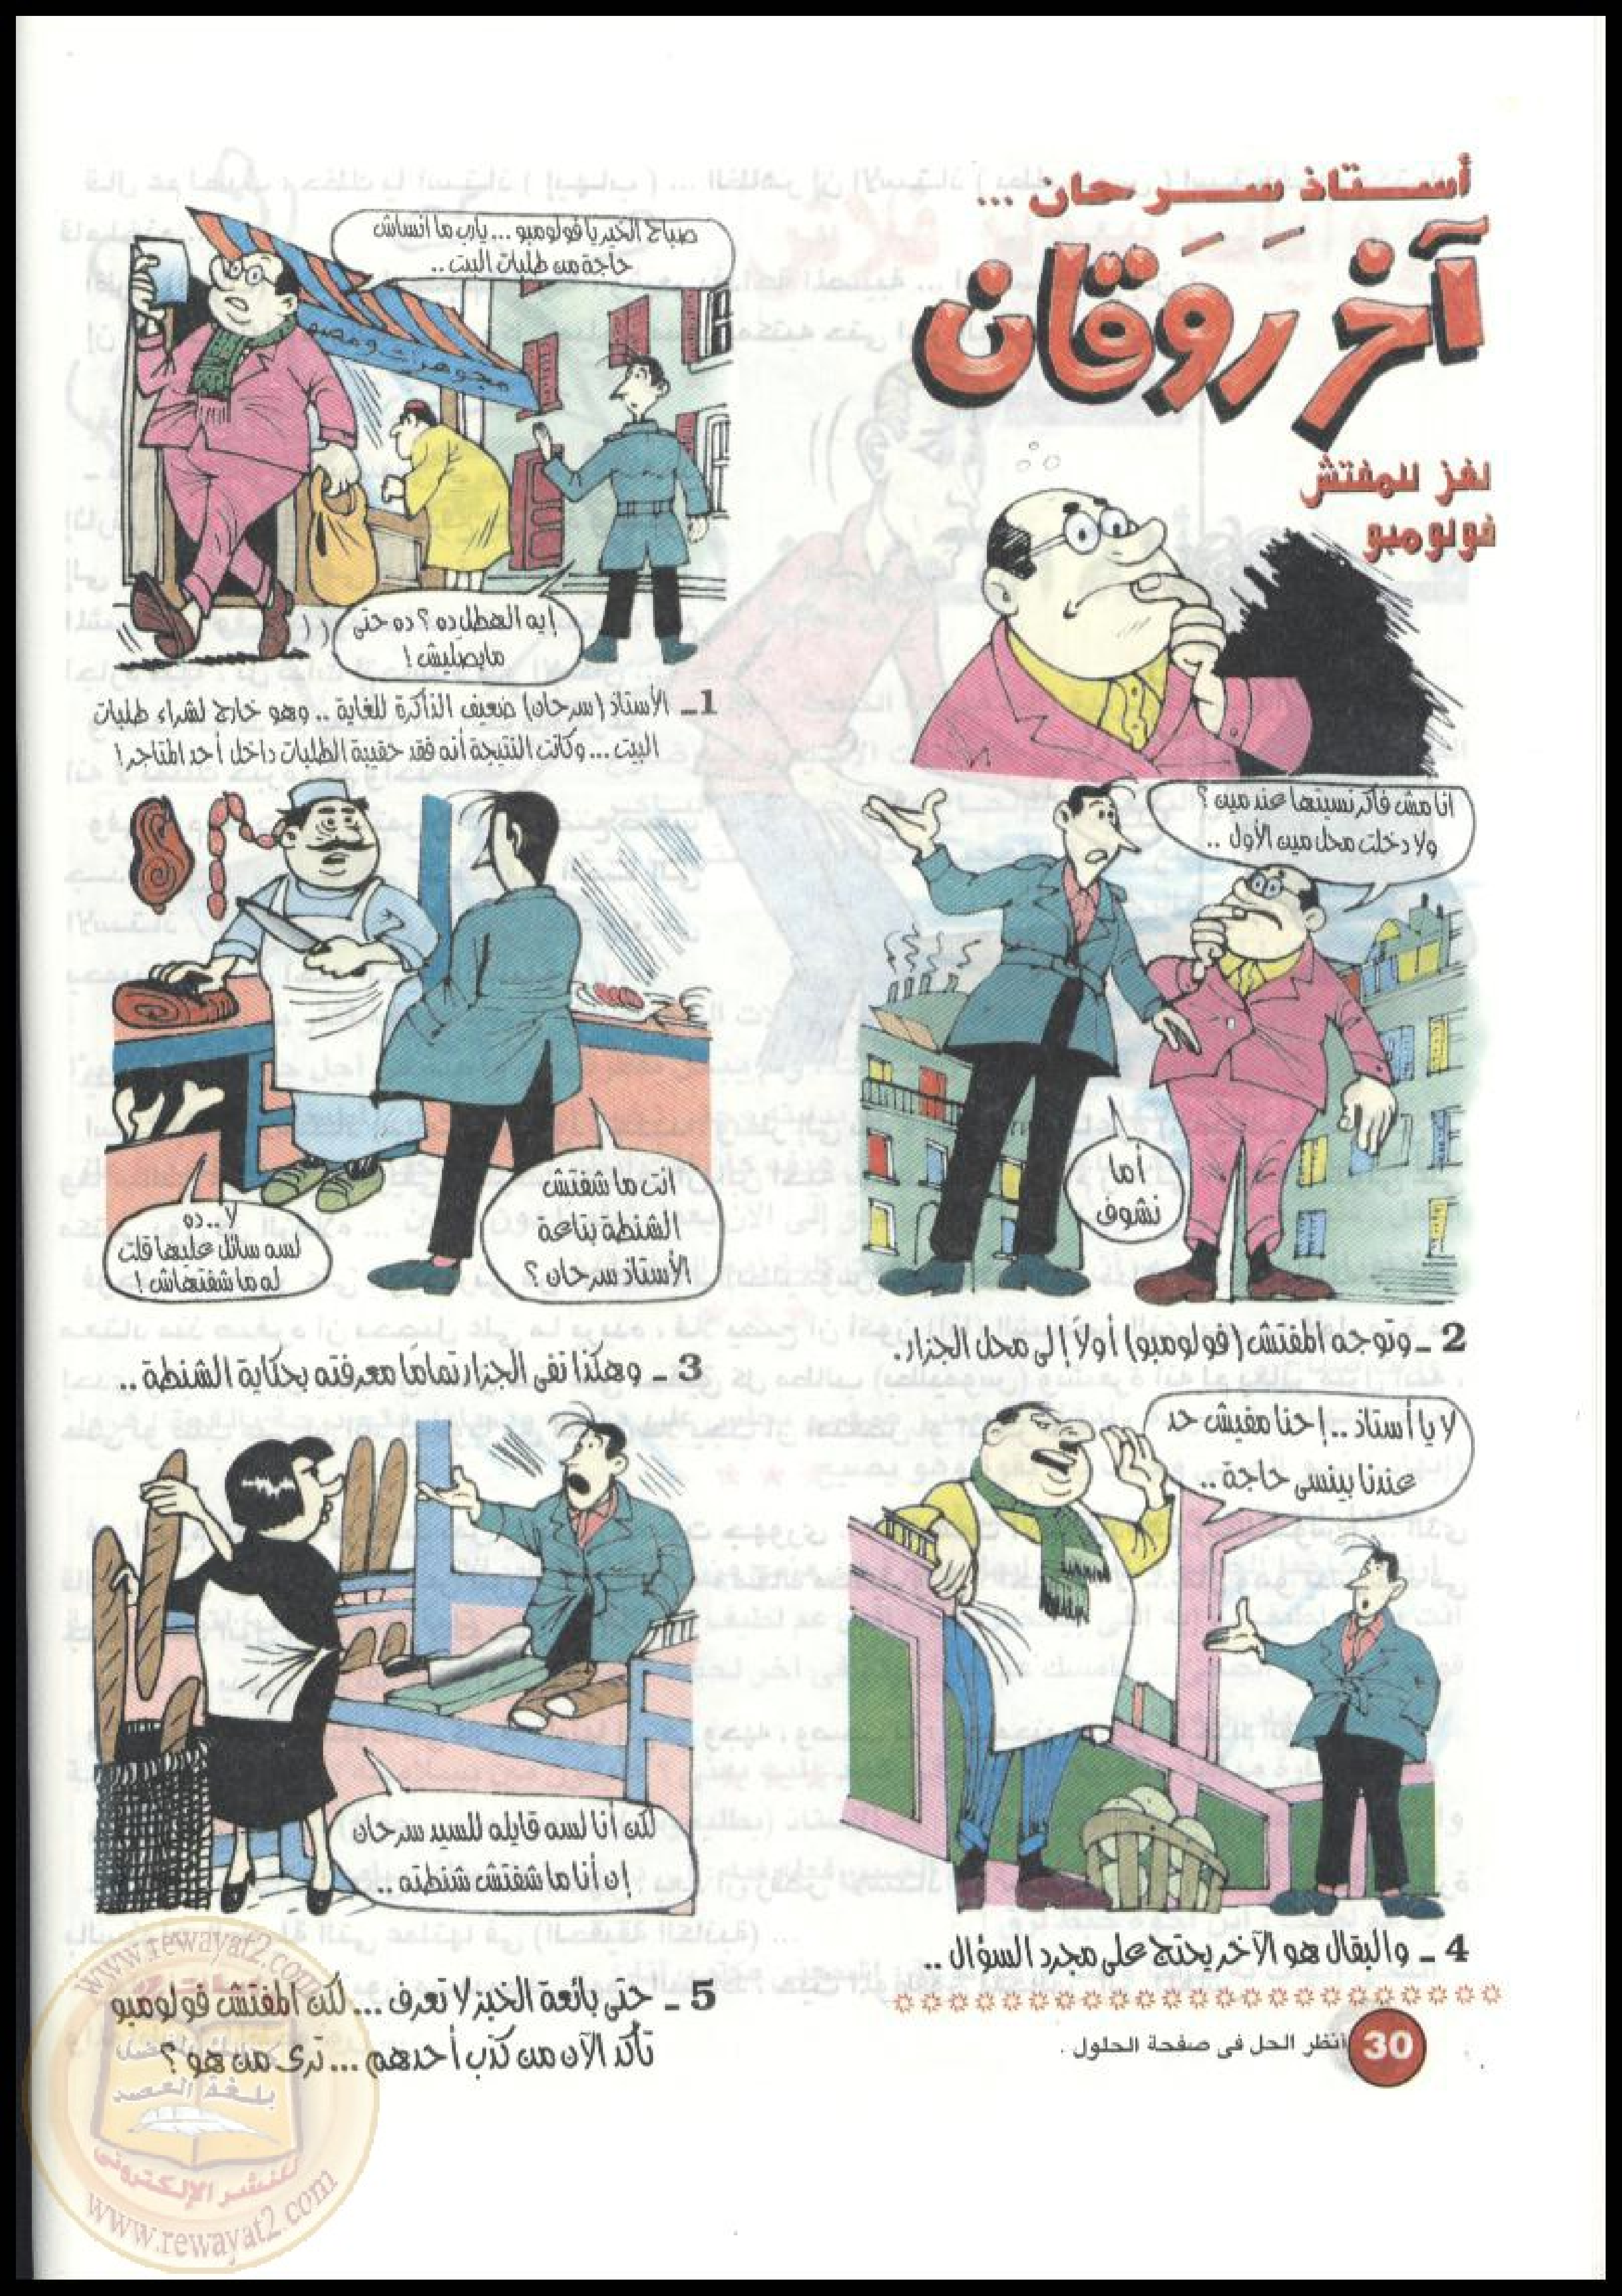 أستاذ سرحان ...
آخر رَوَقَان
لغز للمفتش
فولومبو
صباح الخير يا فولومبو ... يارب ما انساش
حاجة من طلبات البيت ..
مجوهرات ومصو
إيه الهطل ده ؟ ده حتى
مابصليش !
1 ـ الأستاذ (سرحان) ضعيف الذاكرة للغاية .. وهو خارج لشراء طلبات
البيت ... وكانت النتيجة أنه فقد حقيبة الطلبات داخل أحد المتاجر !
انا مش فاكر نسيتها عند مين ؟
ولا دخلت محل مين الأول ..
أما
نشوف
2 ـ وتوجه المفتش (فولومبو) أولاً إلى محل الجزار .
انت ما شفتش
الشنطة بتاعة
الأستاذ سرحان ؟
لأ .. ده
لسه سائل عليها قلت
له ما شفتهاش !
3 ـ وهكذا نفى الجزار تمامًا معرفته بحكاية الشنطة ..
لا يا أستاذ .. إحنا مفيش حد
عندنا بينسى حاجة ..
4 ـ والبقال هو الآخر يحتج على مجرد السؤال ..
لكن أنا لسه قايله للسيد سرحان
إن أنا ما شفتش شنطته ..
5 ـ حتى بائعة الخبز لا تعرف ... لكن المفتش فولومبو
تأكد الآن من كذب أحدهم ... ترى من هو ؟
30 انظر الحل فى صفحة الحلول .
www.rewayat2.com
بلغة العصر
للنشر الإلكترونى
www.rewayat2.com